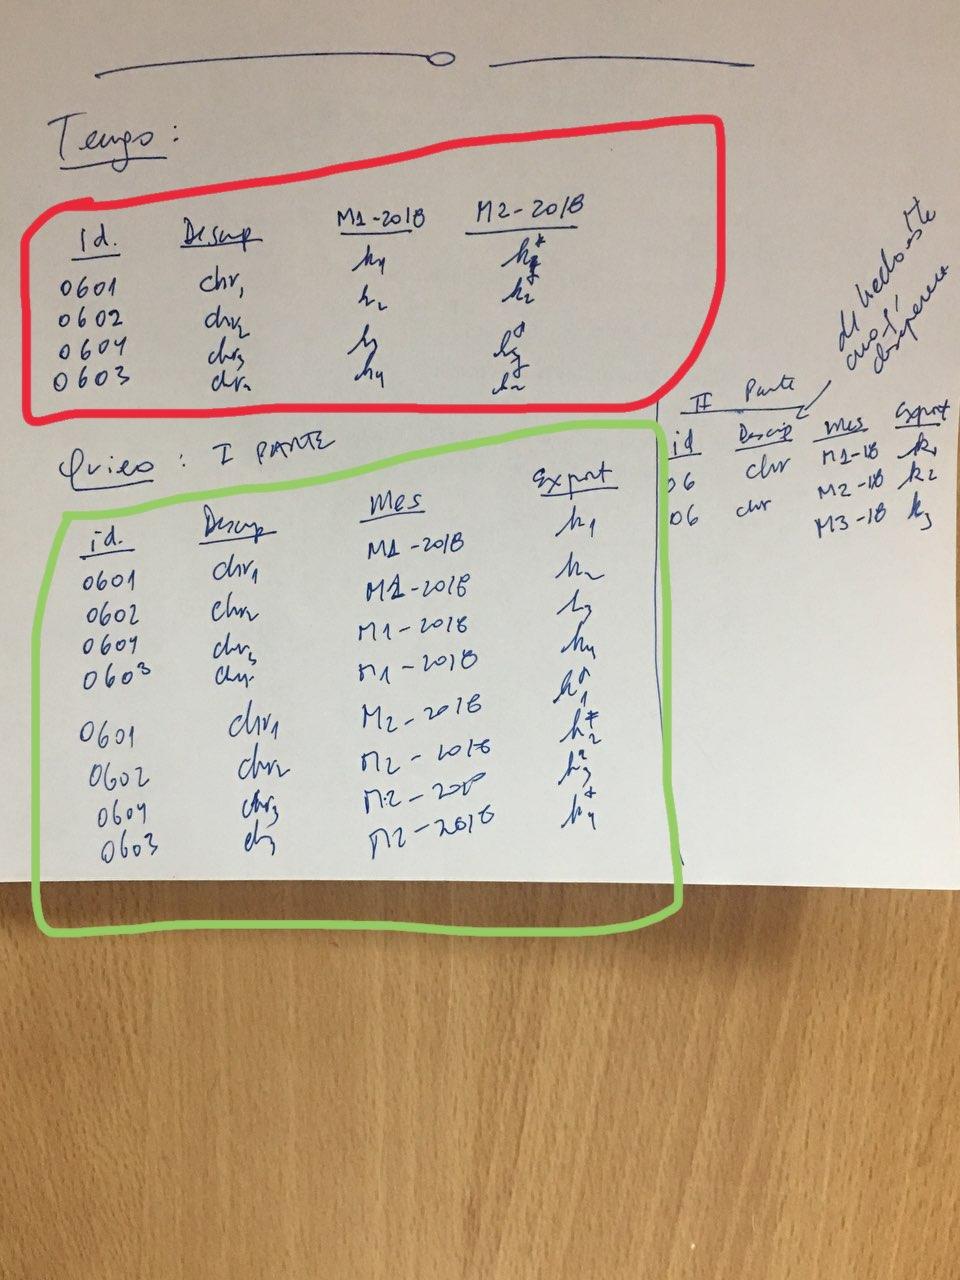 Tengo:
Id. Descrip M1-2018 M2-2018
0601 chr₁ k₁
0602 chr₂ k₂ k₂*
0604 chr₃ k₃ k₃*
0603 k₄
Quiero: I PARTE
id. Descrip Mes Export
0601 chr₁ M1-2018 k₁
0602 chr₂ M1-2018 k₂
0604 chr₃ M1-2018 k₃
0603 chr₄ M1-2018 k₄
0601 chr₁ M2-2018 k₁*
0602 chr₂ M2-2018 k₂*
0604 chr₃ M2-2018 k₃*
0603 M2-2018 k₄*
II Parte
id Descrip Mes Export
06 chr M1-18 k₁
06 chr M2-18 k₂
M3-18 k₃
de hecho este